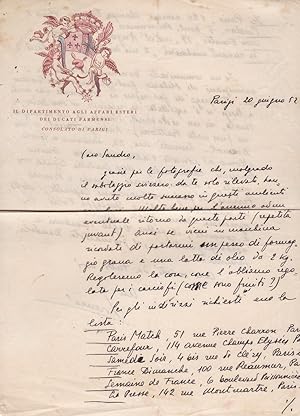 IL DIPARTIMENTO AGLI AFFARI ESTERI
DEI DUCATI PARMENSI
CONSOLATO DI PARIGI
Parigi 20 giugno 52
Caro Sandro,
grazie per le fotografie che, malgrado
il sabotaggio svizzero, da te solo rilevato, han
no avuto molto successo in questi ambienti
Molto bene per l'annunciato
eventuale ritorno da queste parti (repetita
juvant). Anzi se vieni in macchina
ricordati di portarmi un pezzo di formag
gio grana e una latta di olio da 2 kg.
Regoleremo la cosa, come l'abbiamo rego
lata per i carciofi (come sono finiti?)
Per gli indirizzi richiesti ecco la
lista:
Paris Match, 51 rue Pierre Charron Paris
Carrefour, 114 avenue Champs Elysées Paris
Samedi Soir, 4 bis rue de Cléry, Paris
France Dimanche, 100 rue Reaumur, Paris
Semaine de France, 6 boulevard Poissonnière
Presse, 142 rue Montmartre, Paris